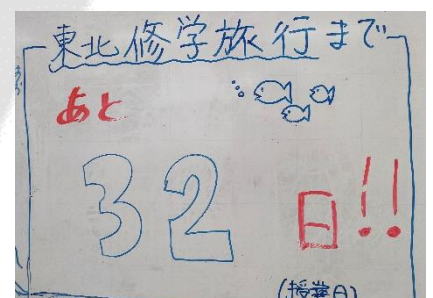 東北修学旅行まで
あと
32
日!!
(授業日)